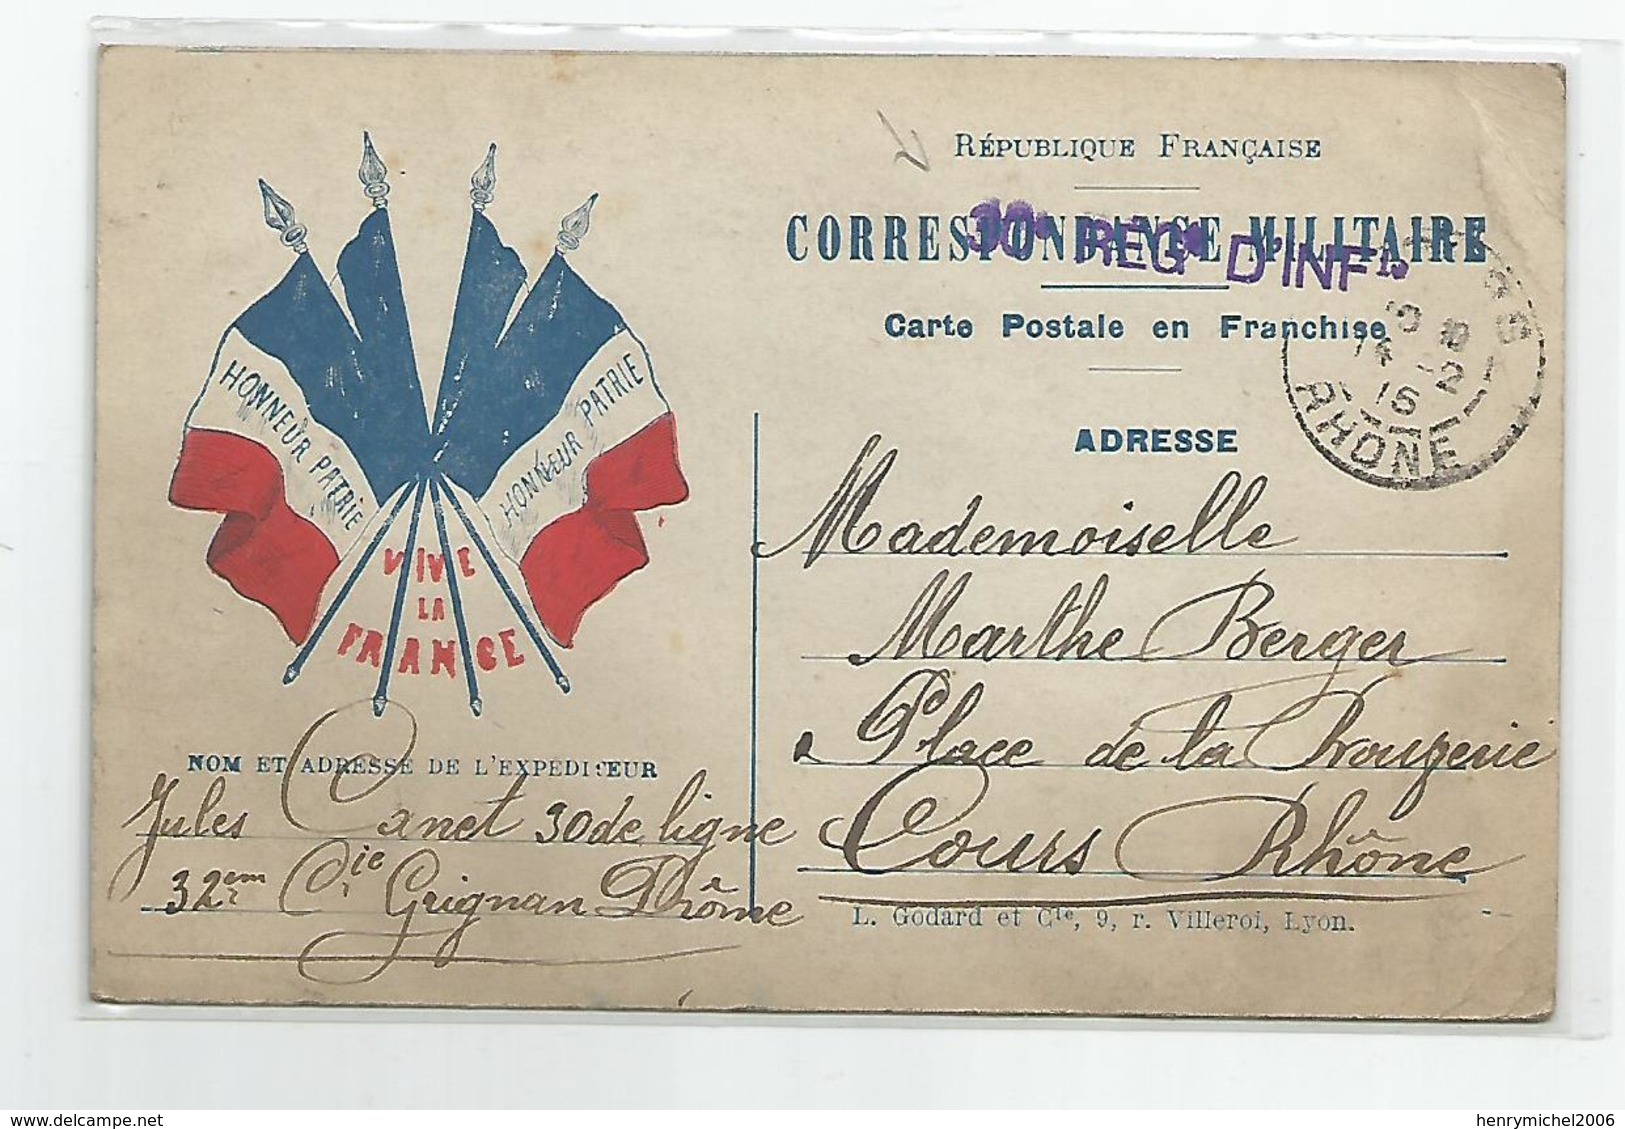 RÉPUBLIQUE FRANÇAISE
CORRESPONDANCE MILITAIRE
30e REGt D'INFie
Carte Postale en Franchise
COURS
14 -2
15
RHONE
ADRESSE
HONNEUR PATRIE
HONNEUR PATRIE
VIVE
LA
FRANCE
Mademoiselle
Marthe Berger
Place de la
Cours Rhône
NOM ET ADRESSE DE L'EXPEDITEUR
Jules Canet 30 de ligne
32em Cie Grignan Drôme
L. Godard et Cie, 9, r. Villeroi, Lyon.
delcampe.net
henrymichel2006